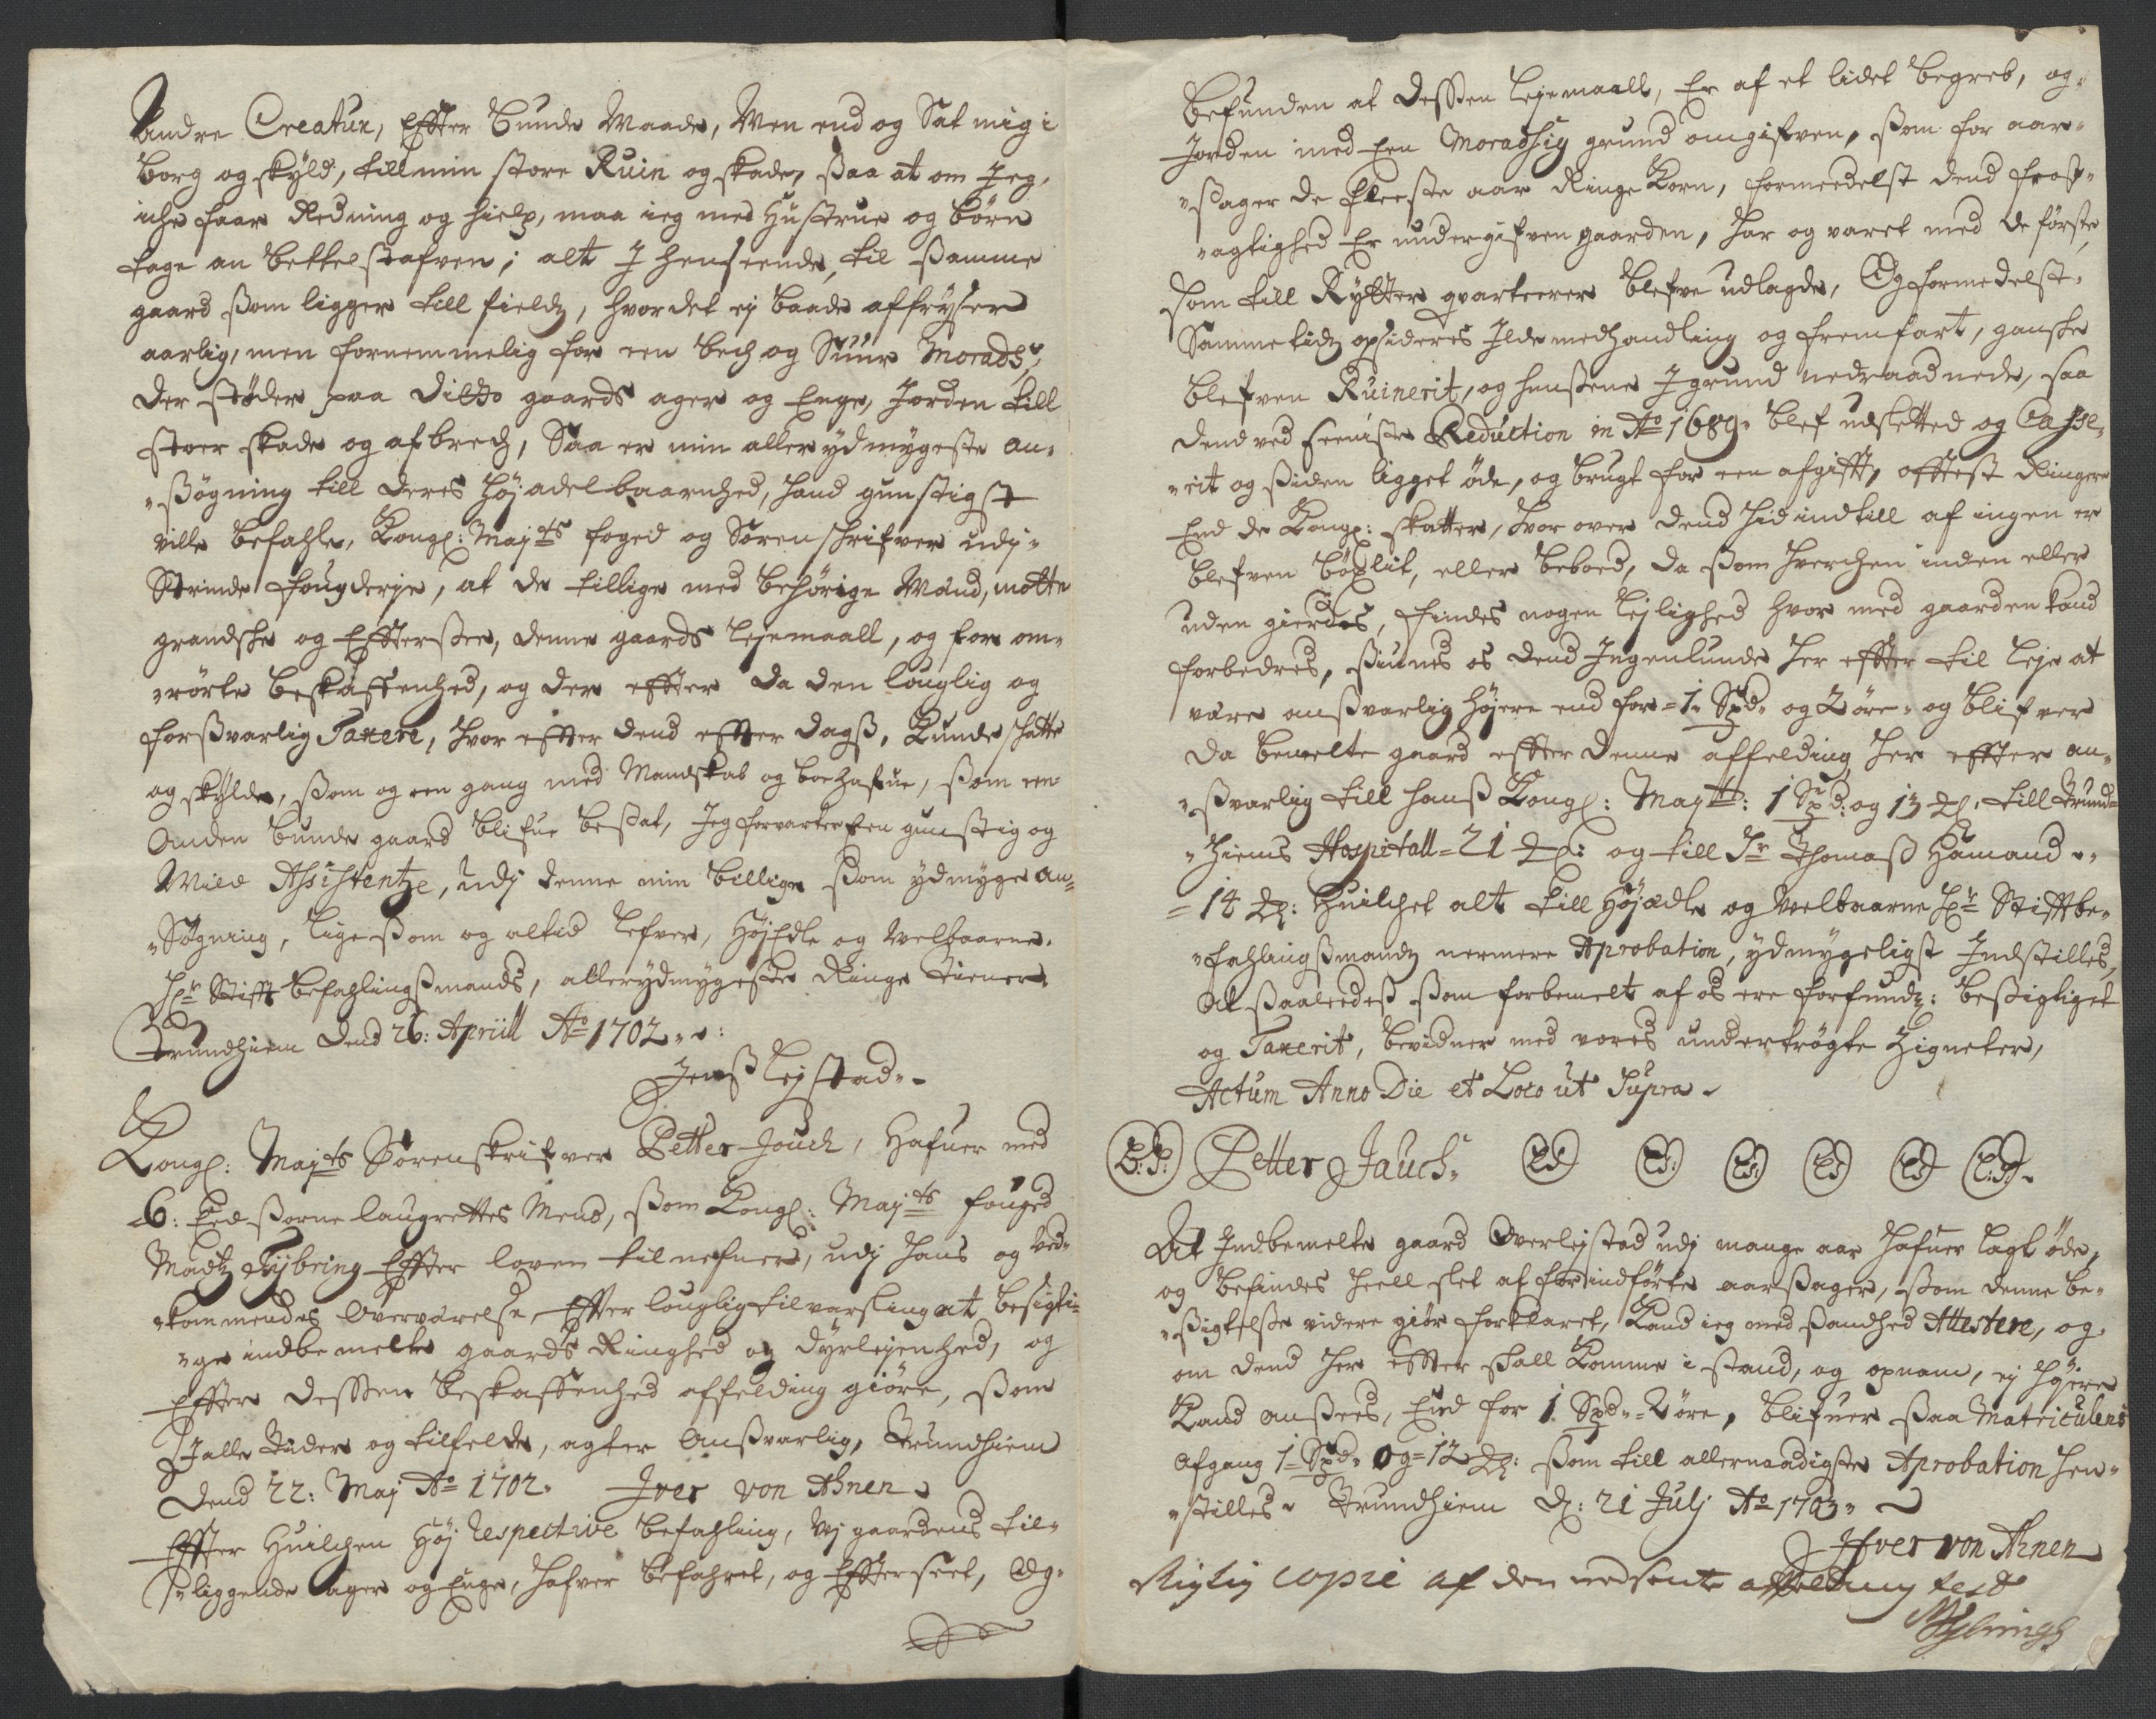 Andre Creatur, Effter bunde Maade, Men end og Sat mig i
borg og skyld, till min store Ruin og skade, ßaa at om Jeg,
iche faar Redning og hielp, maa ieg med Hustrue og børn
tage an bettelstafven; alt J henseende, til ßamme
gaard ßom ligger till fieldz, hvor det ej baade affryser
aarlig, men fornemmelig for een bech og Suur Morads,
der støder paa ditto gaards ager og Enge, Jorden till
stoer skade og afbrech, Saa er min aller ydmygeste an„
„ßøgning till deres Højadelbaarnhed, hand gunstigst
ville befahle, Kongl: Maj:ts foged og Sorenschrifver udj„
Strinde fougderje, at de tillige med behørige Mænd, motte
grandske og Effterßee, denne gaards Lejemaall, og for om„
„rørte beskaffenhed, og der effter da den louglig og
forßvarlig Taxere, hvor effter dend effter dagß, Kunde schatte
og skylde, ßom og een gang med Mandskab og boehafue, ßom een
Anden bunde gaard blifue beßat, Jeg forvarter Een gunstig og
Mild Aßistentze, udj denne min billige ßom ydmyge an„
„Søgning, ligeßom og altid lefver, HøjEdle og Welbaarne.
Hr Stifft befahlingßmands, allerydmygeste Ringe tiener
Trundhiem dend 26: Apriill Ao 1702 „ „ :
Jenß Lejstad „
Kongl: Maj:ts Sorenskrifver Petter Jouch, Hafuer med
6: Eed ßorne laugrettes Mend, ßom Kongl: Maj:ts fouged
Madtz Tybring Effter loven tilnefner, udj hans og ved„
„kommendes Overværelse, Effter louglig tilvarsling at besigti„
„ge indbemelte gaards Ringhed og dyrlejenhed, og
Effter dessen beskaffenhed affelding giøre, ßom
J alle tider og tilfelde, agter Anßvarlig, Trundhiem
dend 22: Maj Ao 1702. Jver von Ahnen
Effter Huilchen Høj respective befahling, Wj gaardens til„
„liggende ager og Enge, hafver befahret, og Effterseet, Og„
befunden at dessen Lejemaall, Er af et lidet begreb, og„
Jorden med Een Moradßig grund omgifven, ßom for aar„
„ßager de fleeste aar Ringe Korn, formeedelst dend frost„
„agtighed Er undergifven gaarden, har og varet med de første
som till Rytter qvarteerer blefve udlagde, Og formedelst
Samme tidz opsideres Jlde medhandling og fremfart, ganske
blefven Ruinerit, og husßene J grund nedraadnede, saa
dend ved seeniste Reduction in Ao 1689. blef udsletted og Caße„
„rit og ßiden ligget øde, og brugt for een afgifft, offtest Ringere
End de Kongl: skatter, hvor over dend hid indtill af ingen er
blefven bøxlit, eller beboed, da ßom hverchen inden eller
uden gierdes, findes nogen lejlighed hvor med gaarden kand
forbedres, ßiunes os dend Jngenlunde her effter til leje at
være anßvarlig højere end for = 1 „ Spd „ og 2 øre „ og blifver
da bemelte gaard effter denne affelding her effter an„
„ßvarlig till hanß Kongl: Maj:tt: 1 Spd: og 13 ℔, till Trund„
„hiems Hospitall = 21 ℔: og till Sr Thomaß Hamand „ „
= 14 ℔: Huilchet alt till Højædle og Welbaarne Hr Stifftbe„
„fahlingßmandz nermere Aprobation, ydmygeligst Jndstilles,
At ßaaleedeß ßom forbemelt af os ere forfund: beßigtiget
og Taxerit, bevidner med vores undertrøgte Zigneter,
Actum Anno Die et Loco ut Supra „
L:S: Petter Jauch „ LS LS: LS: LS LS L:S: „
At Jndbemelte gaard Overlejstad udj mange aar hafuer lagt øde,
og befindes heell slet af for indførte aarßager, ßom denne be„
„ßigtelße videre giør forklaret, Kand ieg med ßandhed Attestere, og„
om dend her effter skall Komme i stand, og opnam, ej højere
Kand anßees, End for 1 Spd „ = 2 øre, blifuer ßaa Matriculens
Afgang 1 = Spd „ og = 12 ℔: ßom till allernaadigste Aprobation hen„
„stilles „ Trundhiem d: 21 Julj Ao 1703 „
Jfver von Ahnen
Rigtig copie af den nedsente affelding test
MTybringh